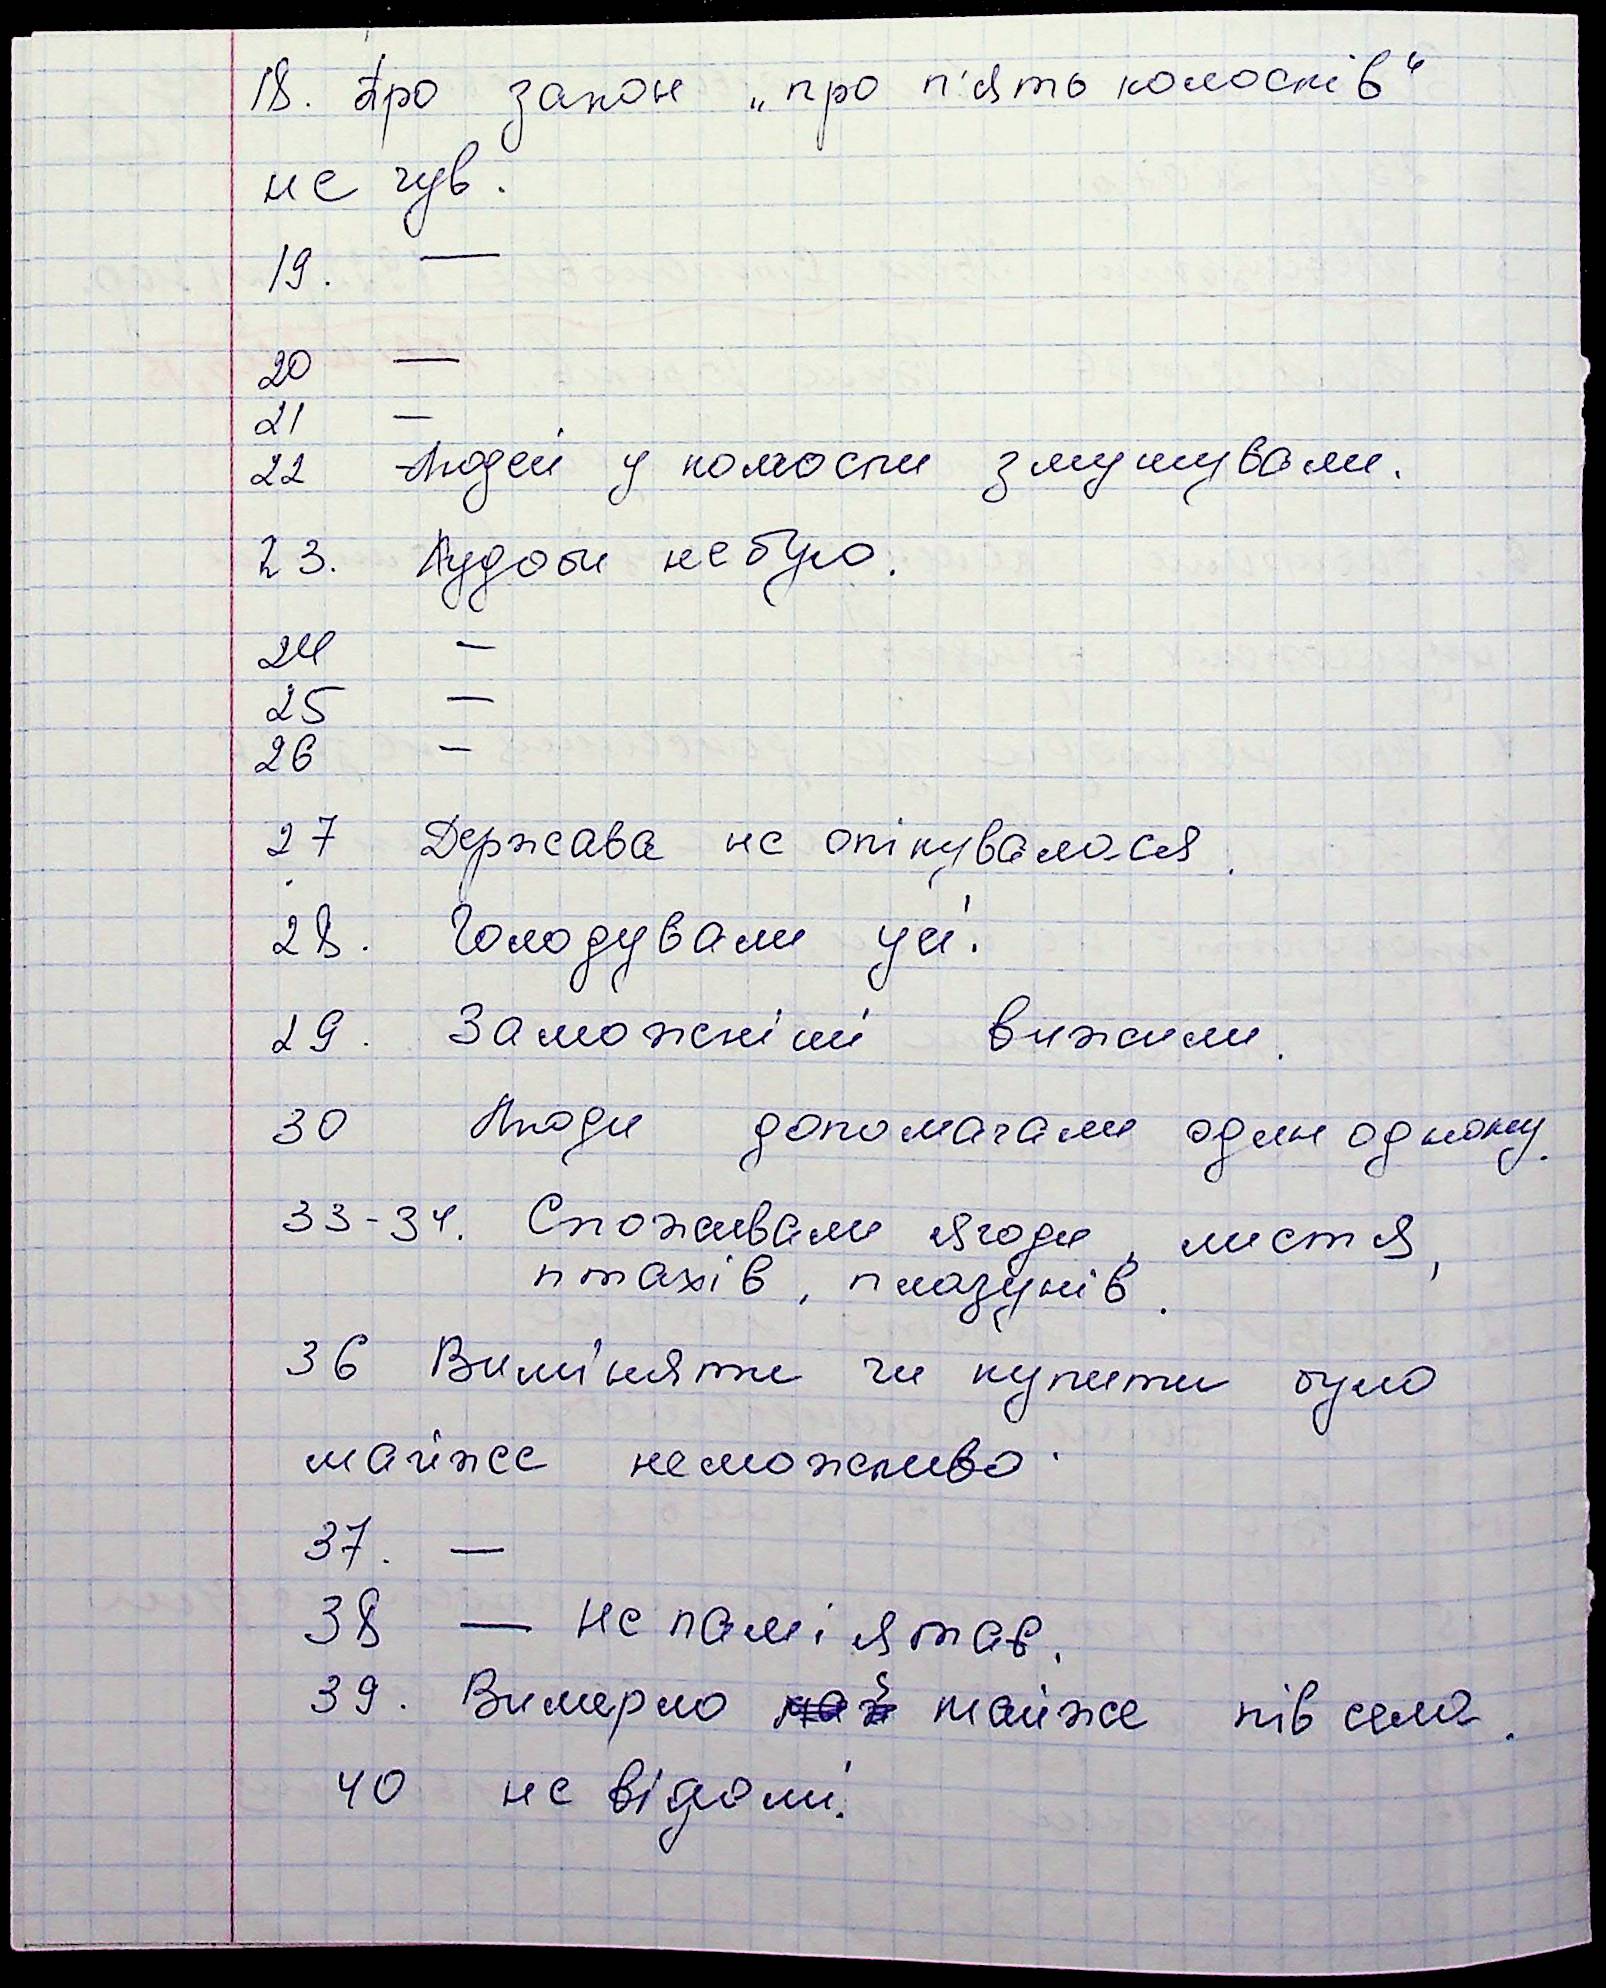 18. Про закон „про п'ять колосків“
не чув.
19. —
20 —
21 —
22 Людей у колгоспи змушували.
23. Худоби не було.
24 —
25 —
26 —
27 Держава не опікувалася.
28. Голодували усі.
29. Заможніші вижили.
30 Люди допомагали один одному.
33-34. Споживали ягоди, листя,
птахів, плазунів.
36 Виміняти чи купити було
майже неможливо.
37. —
38 — не пам'ятає.
39. Вимерло майже пів села.
40 не відомі.